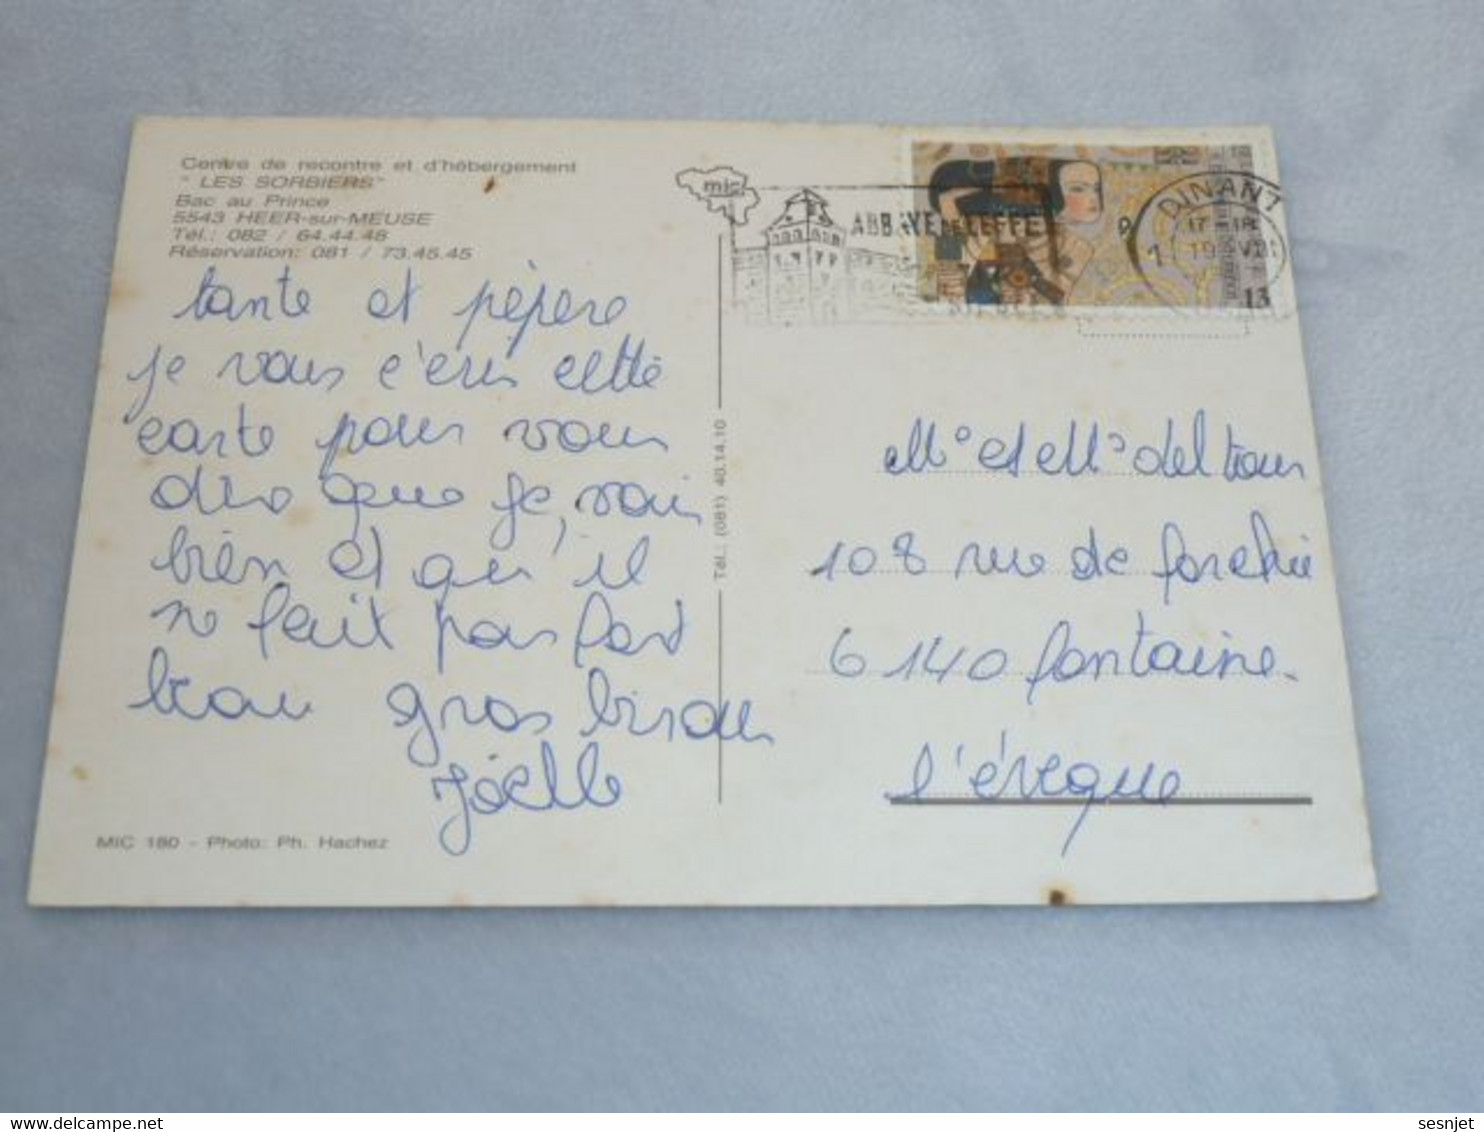 Centre de recontre et d'hébergement
" LES SORBIERS"
Bac au Prince
5543 HEER-sur-MEUSE
Tél.: 082 / 64.44.48
Réservation: 081 / 73.45.45
tante et pépère
je vous c'eris cette
carte pour vous
dire que je, vais
bien et qu'il
ne fait pas fort
beau gros bisous
Joëlle
MIC 180 - Photo: Ph. Hachez
Tél.: (081) 40.14.10
mic
ABBAYE DE LEFFE
DINANT
17-18
19 VIII
13
Mr et Mm Deltour
108 rue de forchie
6140 fontaine.
l'évèque
sesnjet